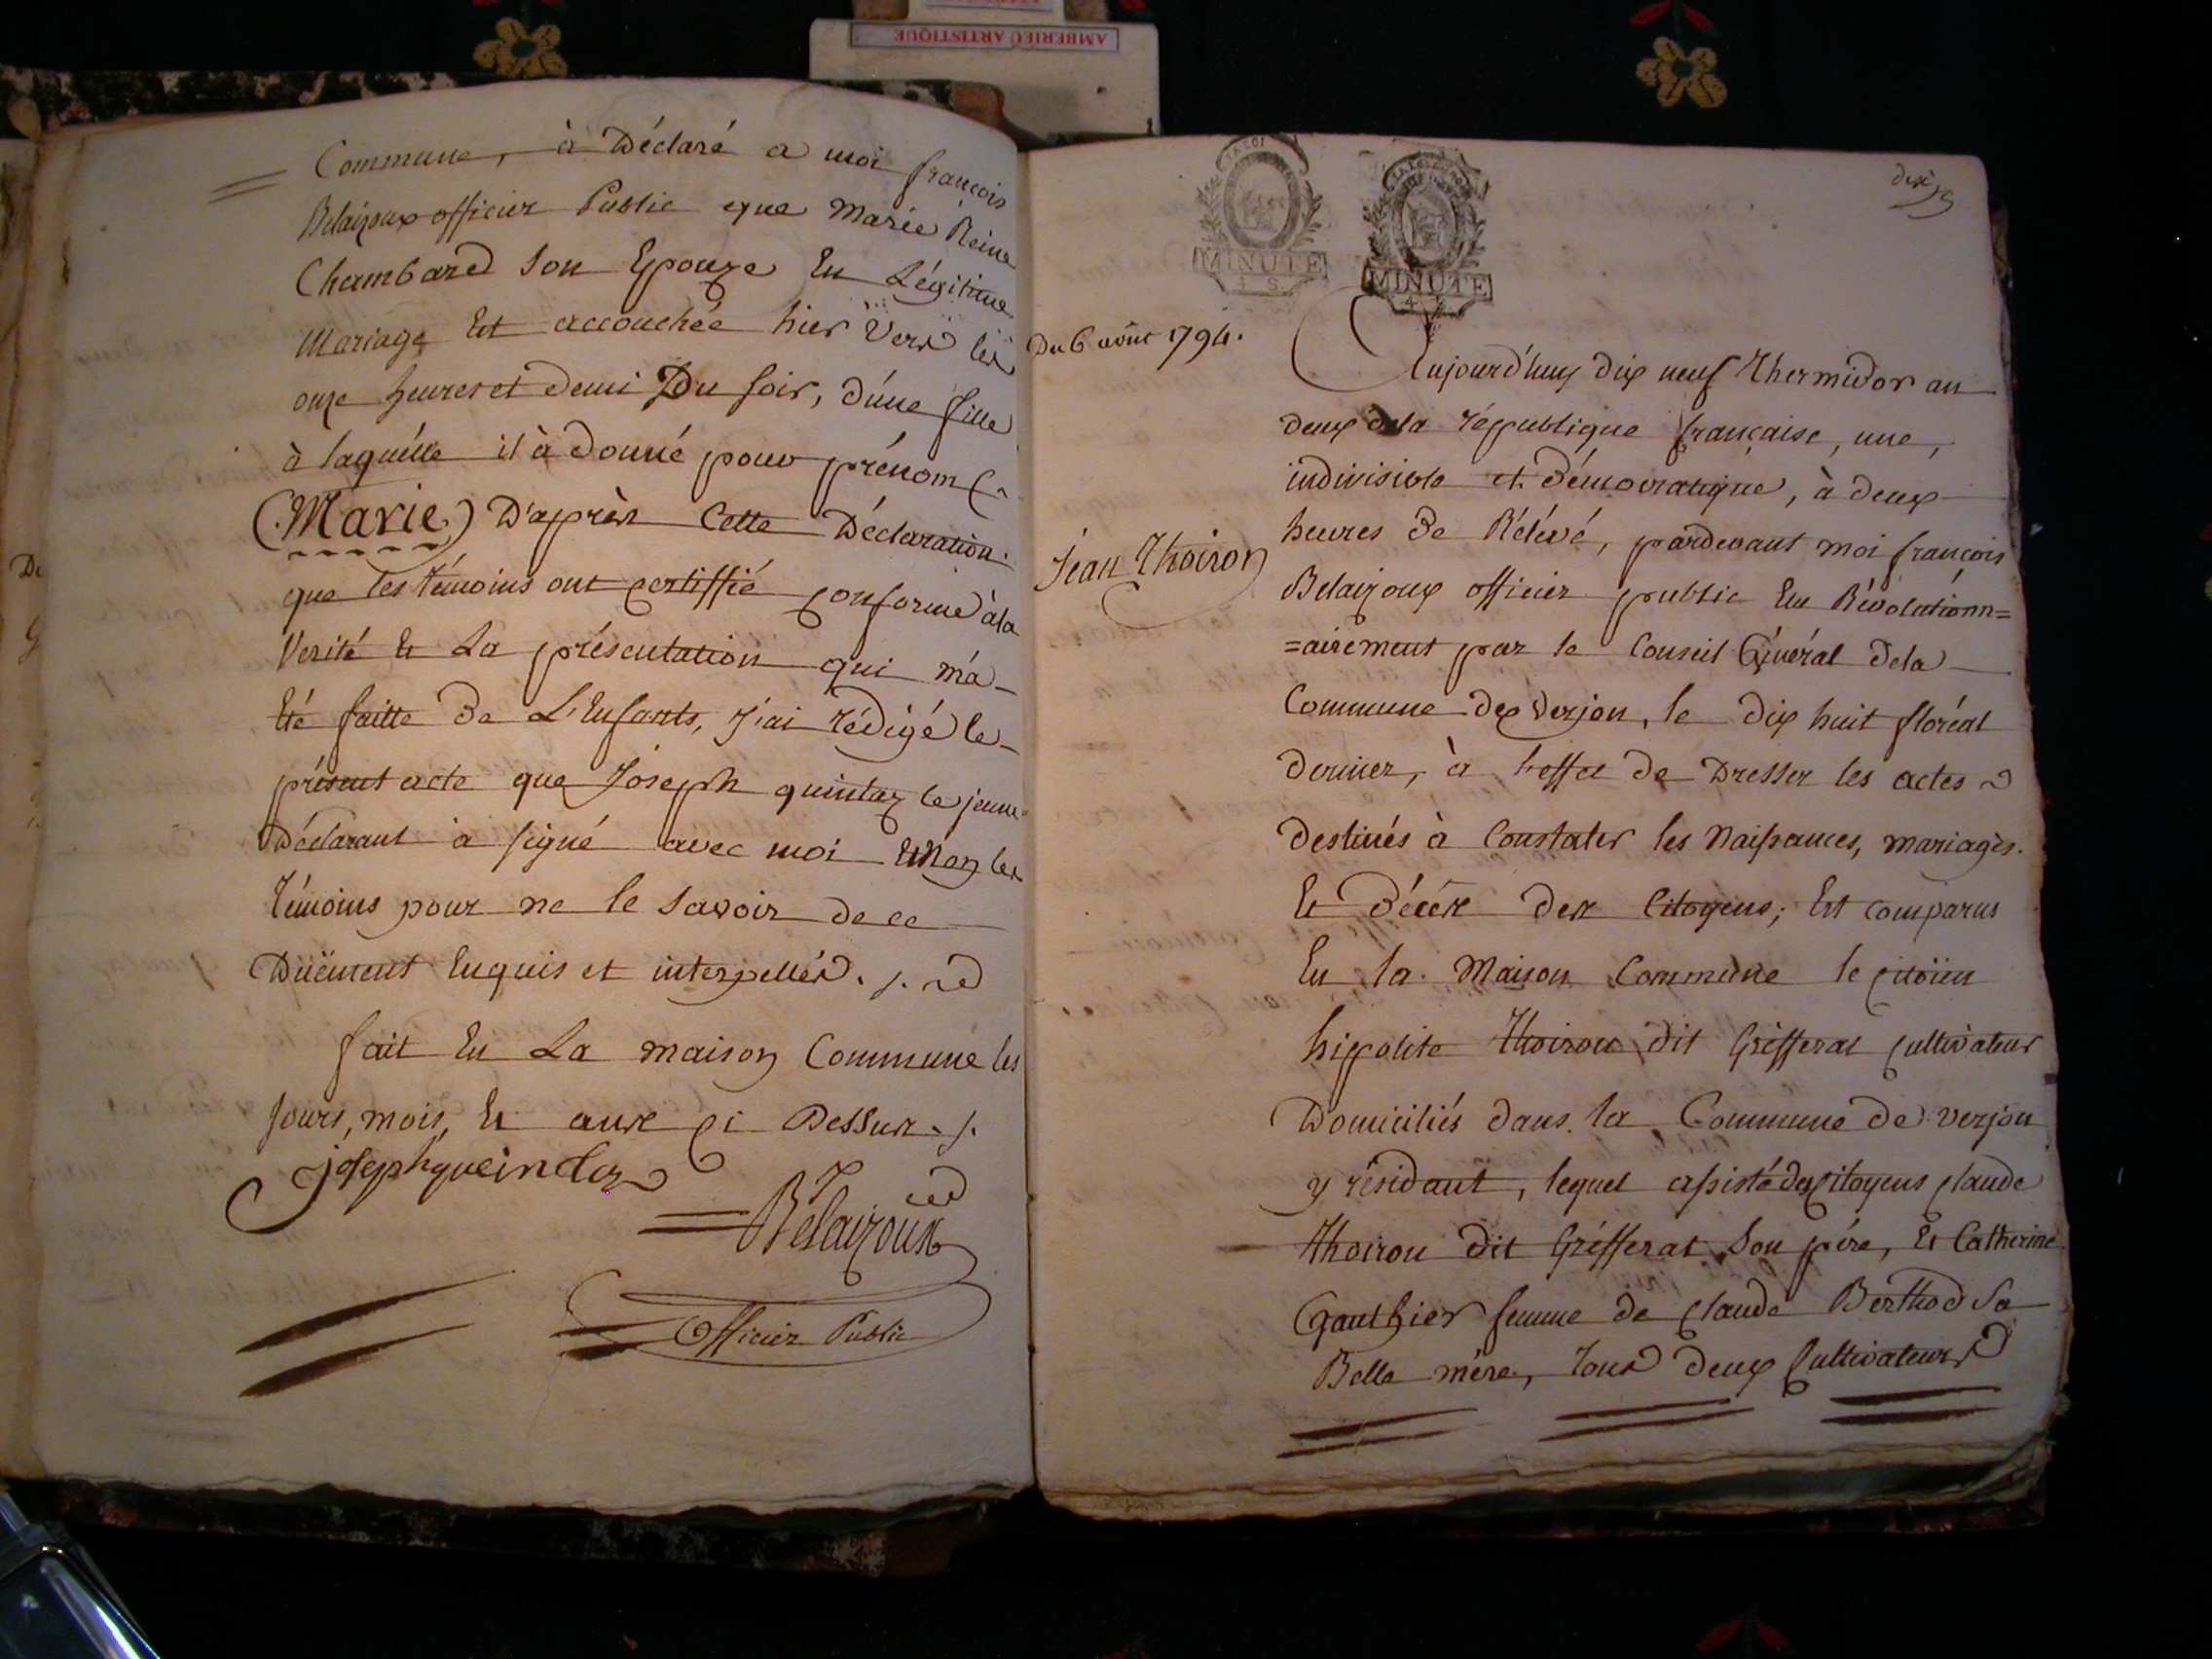 AMBERIEU ARTISTIQUE
Commune, à Déclaré a moi françois
Belaizoux officier Public que Marie Reine
Chambared son Epouze En Légitime
Mariage Est accouchée hier Vers les
onze heures et demi Du soir, d'une fille
à laquélle il à donné pour prénom (~
(Marie) D'après Cette Déclaration
que les témoins ont certiffié conforme à la
Verité & La présentation qui m'a
Eté faitte De L'Enfants, J'ai rédigé le
présent acte que Joseph quintaz le jeune
Déclarant à signé avec moi & Non les
témoins pour ne le savoir de ce
Düement Enquis et interpellés ./.
fait En La maison Commune les
jours, mois, & ans ci Dessus ./.
joseph queindoz
Belaizoux
Officier Public
LA LOI
MINUTE
4 S.
MINUTE
4 S.
dix
Du 6 août 1794.
Aujourd'huy dix neuf Thermidor an
deux dela république française, une,
indivisible et Démocratique, à deux
heures De Rélévé, pardevant moi françois
Jean Thoiron
Belaizoux officier public Elu Révolutionn=
=airement par le Conseil Général dela
Commune de Verjon, le dix huit floréal
dernier, à l'effet de Dresser les actes
destinés à Constater les Naissances, mariages.
& Décés des Citoyens; Est comparus
En la Maison Commune le citoïen
hippolite Thoiron dit Grifferat cultivateur
Domiciliés dans la Commune de Verjon
y résidant, lequel assisté des citoyens claude
Thoiron dit Gréfferat Son père, & Catherine
Gauthier femme de claude Berthod Sa
Belle mère, tous deux Cultivateurs